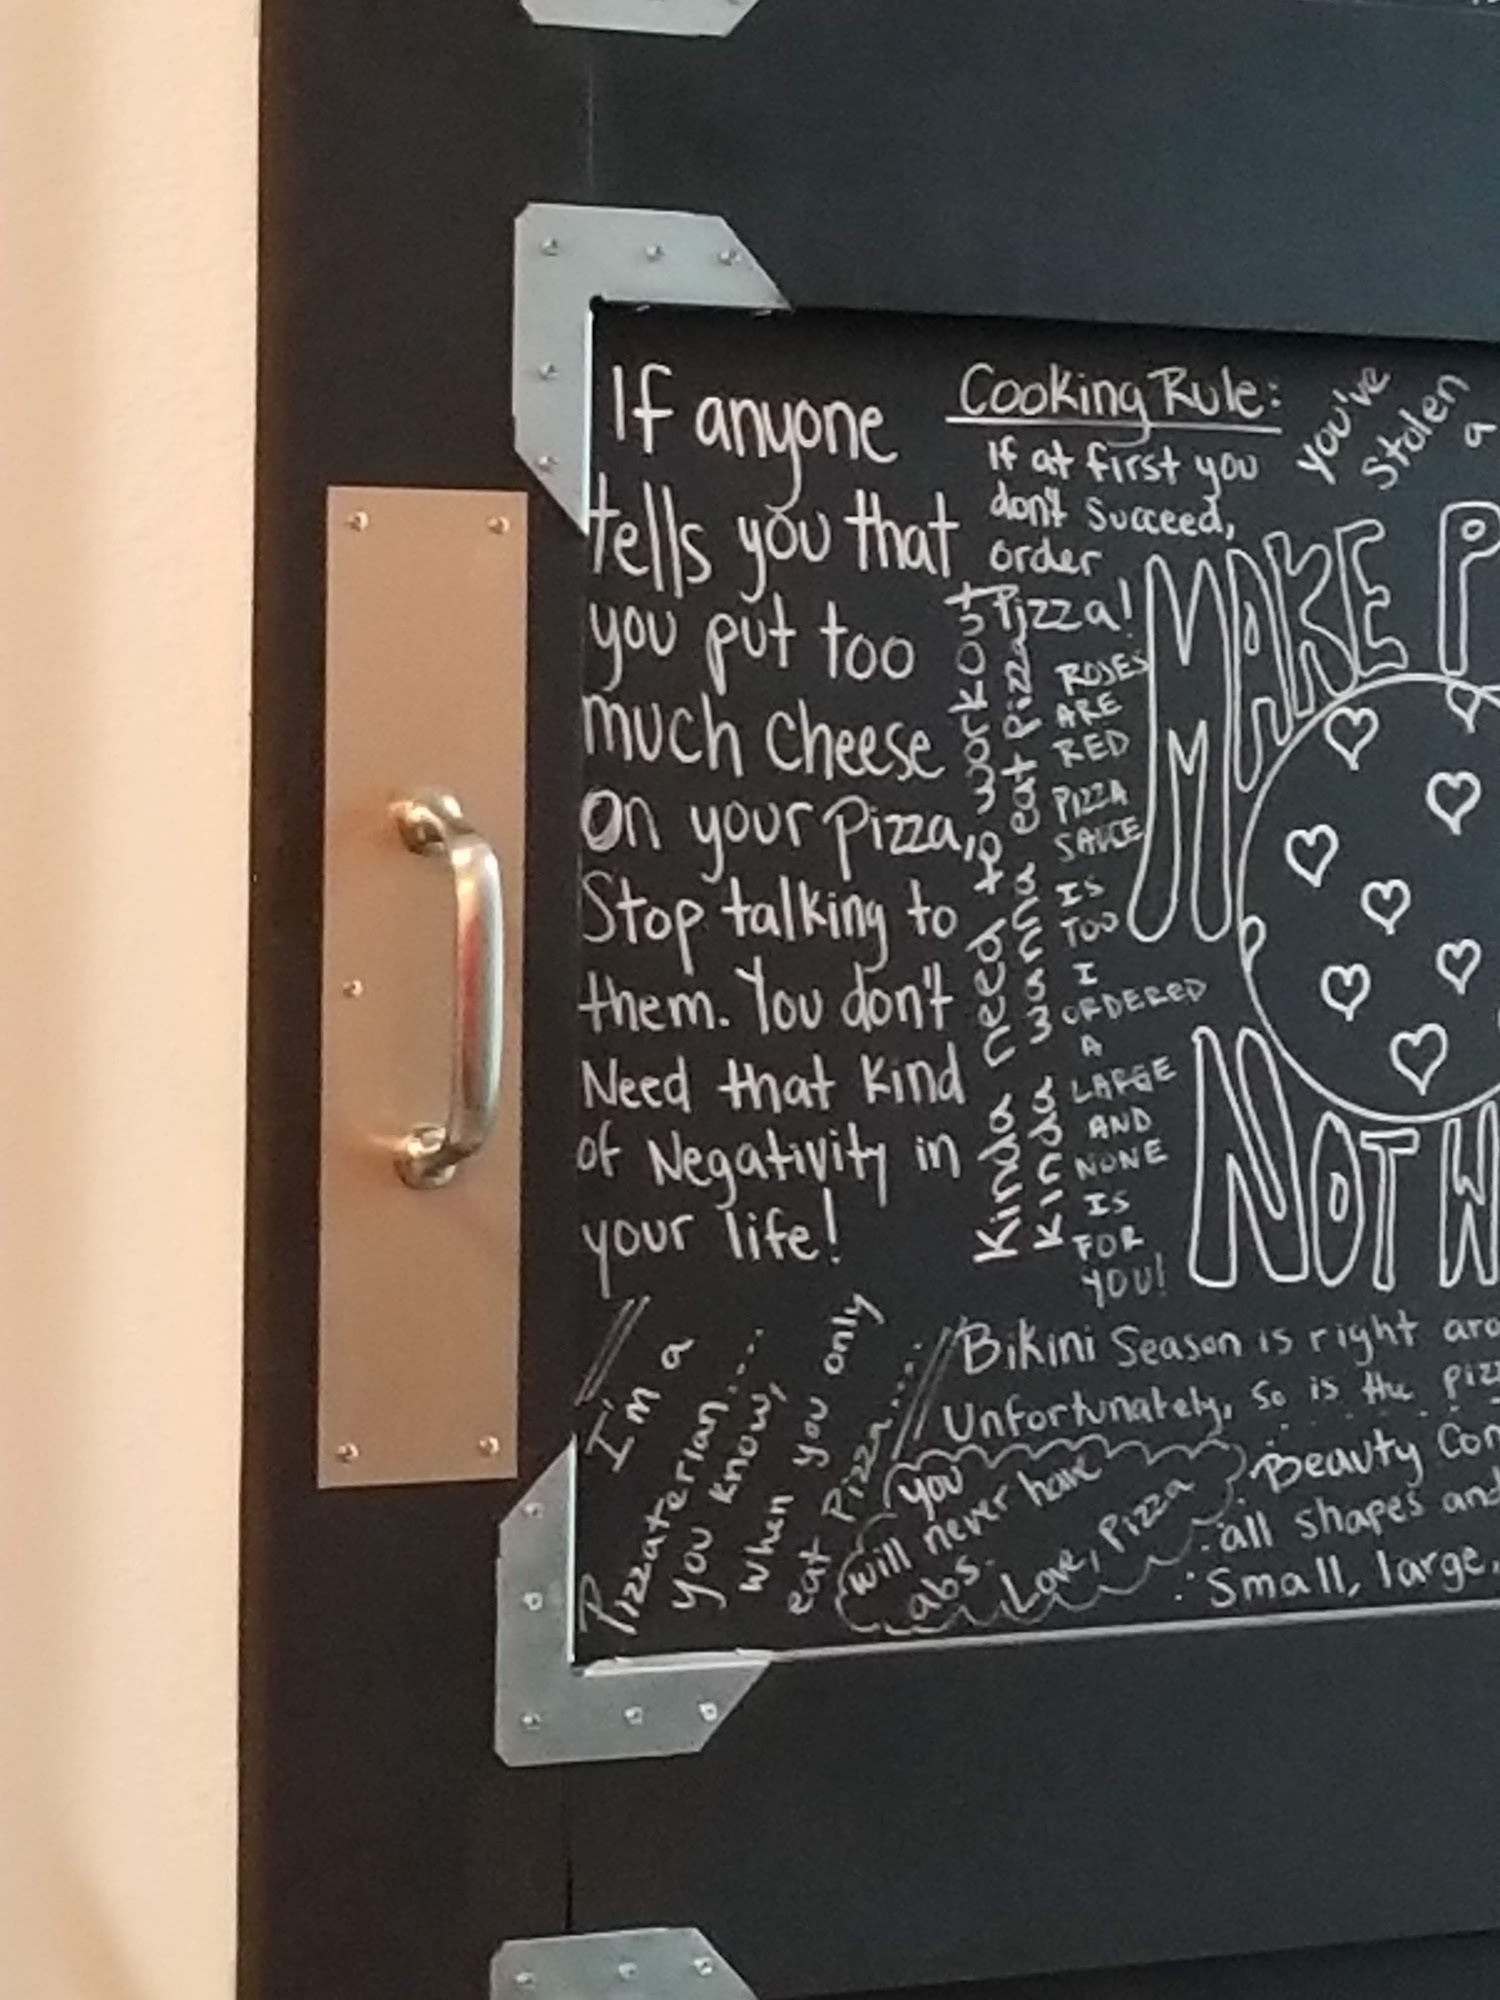 If anyone
tells you that
you put too
much cheese
on your pizza,
Stop talking to
them. You don't
Need that kind
of Negativity in
your life!
Cooking Rule:
If at first you
don't succeed,
order
Pizza!
you've
stolen
a
Kinda need to workout
Kinda wanna eat pizza
ROSES
ARE
RED
PIZZA
SAUCE
IS
TOO
I
ORDERED
A
LARGE
AND
NONE
IS
FOR
YOU!
MAKE P
M
NOT W
I'm a
Pizzaterian....
you know,
when you only
eat Pizza....
Bikini Season is right aro
Unfortunately, so is the pizz
you
will never have
abs.
Love, Pizza
Beauty Con
all shapes and
Small, large,